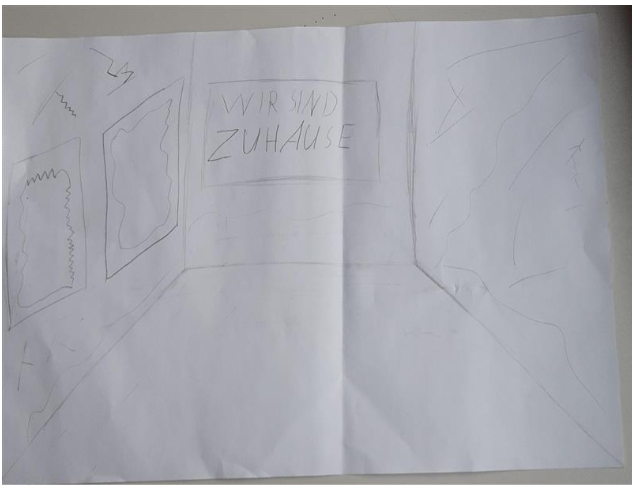 WIR SIND
ZUHAUSE